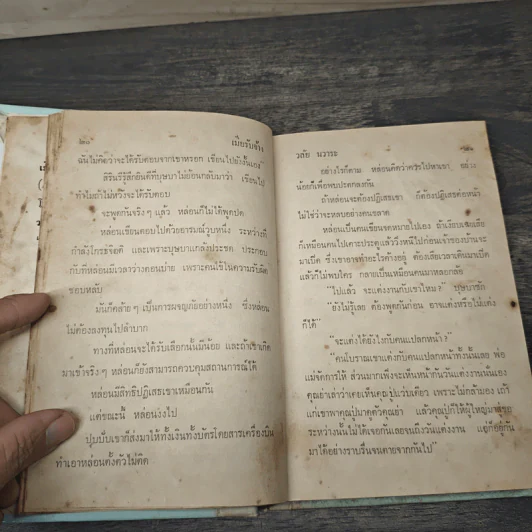 ๒๐
เมียรับจ้าง
ฉันไม่คิดว่าจะได้รับตอบจากเขาหรอก เขียนไปยังงั้นเอง"
สิรินรีรู้สึกยินดีที่บุษบาไม่ย้อนกลับมาว่า เขียนไป
ทำไมถ้าไม่หวังจะได้รับตอบ
จะพูดกันจริง ๆ แล้ว หล่อนก็ไม่ได้พูดปด
หล่อนเขียนตอบไปด้วยอารมณ์วูบหนึ่ง ระหว่างที่
กำลังโกรธจิรอติ และเพราะบุษบาแกล้งประชด ประกอบ
กับที่หล่อนมีเวลาว่างตอนบ่าย เพราะคนไข้ในความรับผิด
ชอบหลับ
มันก็คล้าย ๆ เป็นการผจญภัยอย่างหนึ่ง ซึ่งหล่อน
ไม่ต้องลงทุนไปลำบาก
ทางที่หล่อนจะได้รับเลือกนั้นมีน้อย และถ้าเขาเกิด
มาเข้าจริง ๆ หล่อนก็ยังสามารถควบคุมสถานการณ์ได้
หล่อนมีสิทธิปฏิเสธเขาเหมือนกัน
แต่ขณะนี้ หล่อนงงไป
ปุบปับเขาก็ส่งมาให้ทั้งเงินทั้งบัตรโดยสารเครื่องบิน
ทำเอาหล่อนตั้งตัวไม่ติด
วลัย นวาระ
๒๑
อย่างไรก็ตาม หล่อนคิดว่าควรไปหาเขา อย่าง
น้อยก็เพื่อพบปะตกลงกัน
ถ้าหล่อนจะต้องปฏิเสธเขา ก็ต้องปฏิเสธต่อหน้า
ไม่ใช่ว่าจะหลบอย่างคนขลาด
หล่อนเป็นคนเขียนจดหมายไปเอง ถ้าเงียบเฉยเสีย
ก็เหมือนคนไปเคาะประตูแล้ววิ่งหนีไปก่อนเจ้าของบ้านจะ
มาเปิด ซึ่งเขาอาจทำอะไรค้างอยู่ ต้องเสียเวลาเดินมาเปิด
แล้วก็ไม่พบใคร กลายเป็นเหมือนคนมาหลอกล้อ
"ไปแล้ว จะแต่งงานกับเขาไหม?" บุษบาซัก
"ยังไม่รู้เลย ต้องพบกันก่อน อาจแต่งหรือไม่แต่ง
ก็ได้"
"จะแต่งได้ยังไงกับคนแปลกหน้า?"
"คนโบราณเขาแต่งกับคนแปลกหน้าทั้งนั้นเลย พ่อ
แม่จัดการให้ ส่วนมากเพิ่งจะเห็นหน้ากันวันแต่งงานนั่นเอง
คุณย่าเล่าว่าเคยเห็นคุณปู่แวบเดียว เพราะไม่กล้ามอง เถ้า
แก่เขาพาคุณปู่มาดูตัวคุณย่า แล้วคุณปู่ก็ให้ผู้ใหญ่มาสู่ขอ
ระหว่างนั้นไม่ได้เจอกันเลยจนถึงวันแต่งงาน แต่ก็อยู่กัน
มาได้อย่างราบรื่นจนตายจากกันไป"